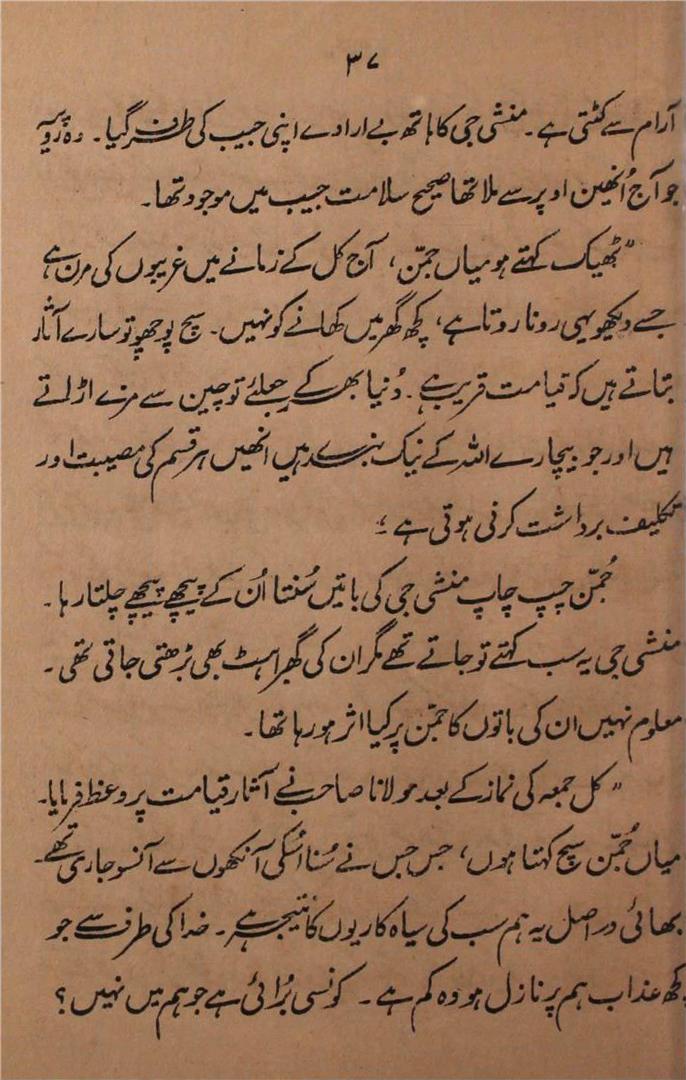 ۳۷
آرام سے کٹتی ہے۔ منشی جی کا ہاتھ بے ارادے اپنی جیب کی طرف گیا۔ وہ روپیہ
جو آج اُنھیں اوپر سے ملا تھا صحیح سلامت جیب میں موجود تھا۔
"ٹھیک کہتے ہو میاں جمّن، آج کل کے زمانے میں غریبوں کی مرن ہے
جسے دیکھو یہی رونا روتا ہے، کچھ گھر میں کھانے کو نہیں۔ سچ پوچھو تو سارے آثار
بتاتے ہیں کہ قیامت قریب ہے۔ دُنیا بھر کے جعلئے تو چین سے مزے اڑاتے
ہیں اور جو بیچارے اللہ کے نیک بندے ہیں انھیں ہر قسم کی مصیبت اور
تکلیف برداشت کرنی ہوتی ہے؛
جُمّن چپ چاپ منشی جی کی باتیں سُنتا اُن کے پیچھے پیچھے چلتا رہا۔
منشی جی یہ سب کہتے تو جاتے تھے مگر ان کی گھبراہٹ بھی بڑھتی جاتی تھی۔
معلوم نہیں ان کی باتوں کا جمّن پر کیا اثر ہو رہا تھا۔
"کل جمعہ کی نماز کے بعد مولانا صاحب نے آثار قیامت پر وعظ فرمایا۔
میاں جُمّن سچ کہتا ہوں، جس جس نے سُنا اُسکی آنکھوں سے آنسو جاری تھے۔
بھائی دراصل یہ ہم سب کی سیاہ کاریوں کا نتیجہ ہے۔ خدا کی طرف سے جو
کچھ عذاب ہم پر نازل ہو وہ کم ہے۔ کونسی بُرائی ہے جو ہم میں نہیں؟